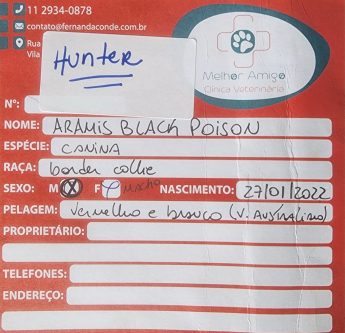 11 2934-0878
contato@fernandaconde.com.br
Rua
Vila
HUNTER
Melhor Amigo
Clínica Veterinária
Nº:
NOME: ARAMIS BLACK POISON
ESPÉCIE: CANINA
RAÇA: border collie
SEXO: M X F macho NASCIMENTO: 27/01/2022
PELAGEM: Vermelho e branco (V. AUSTRALIANO)
PROPRIETÁRIO:
TELEFONES:
ENDEREÇO: